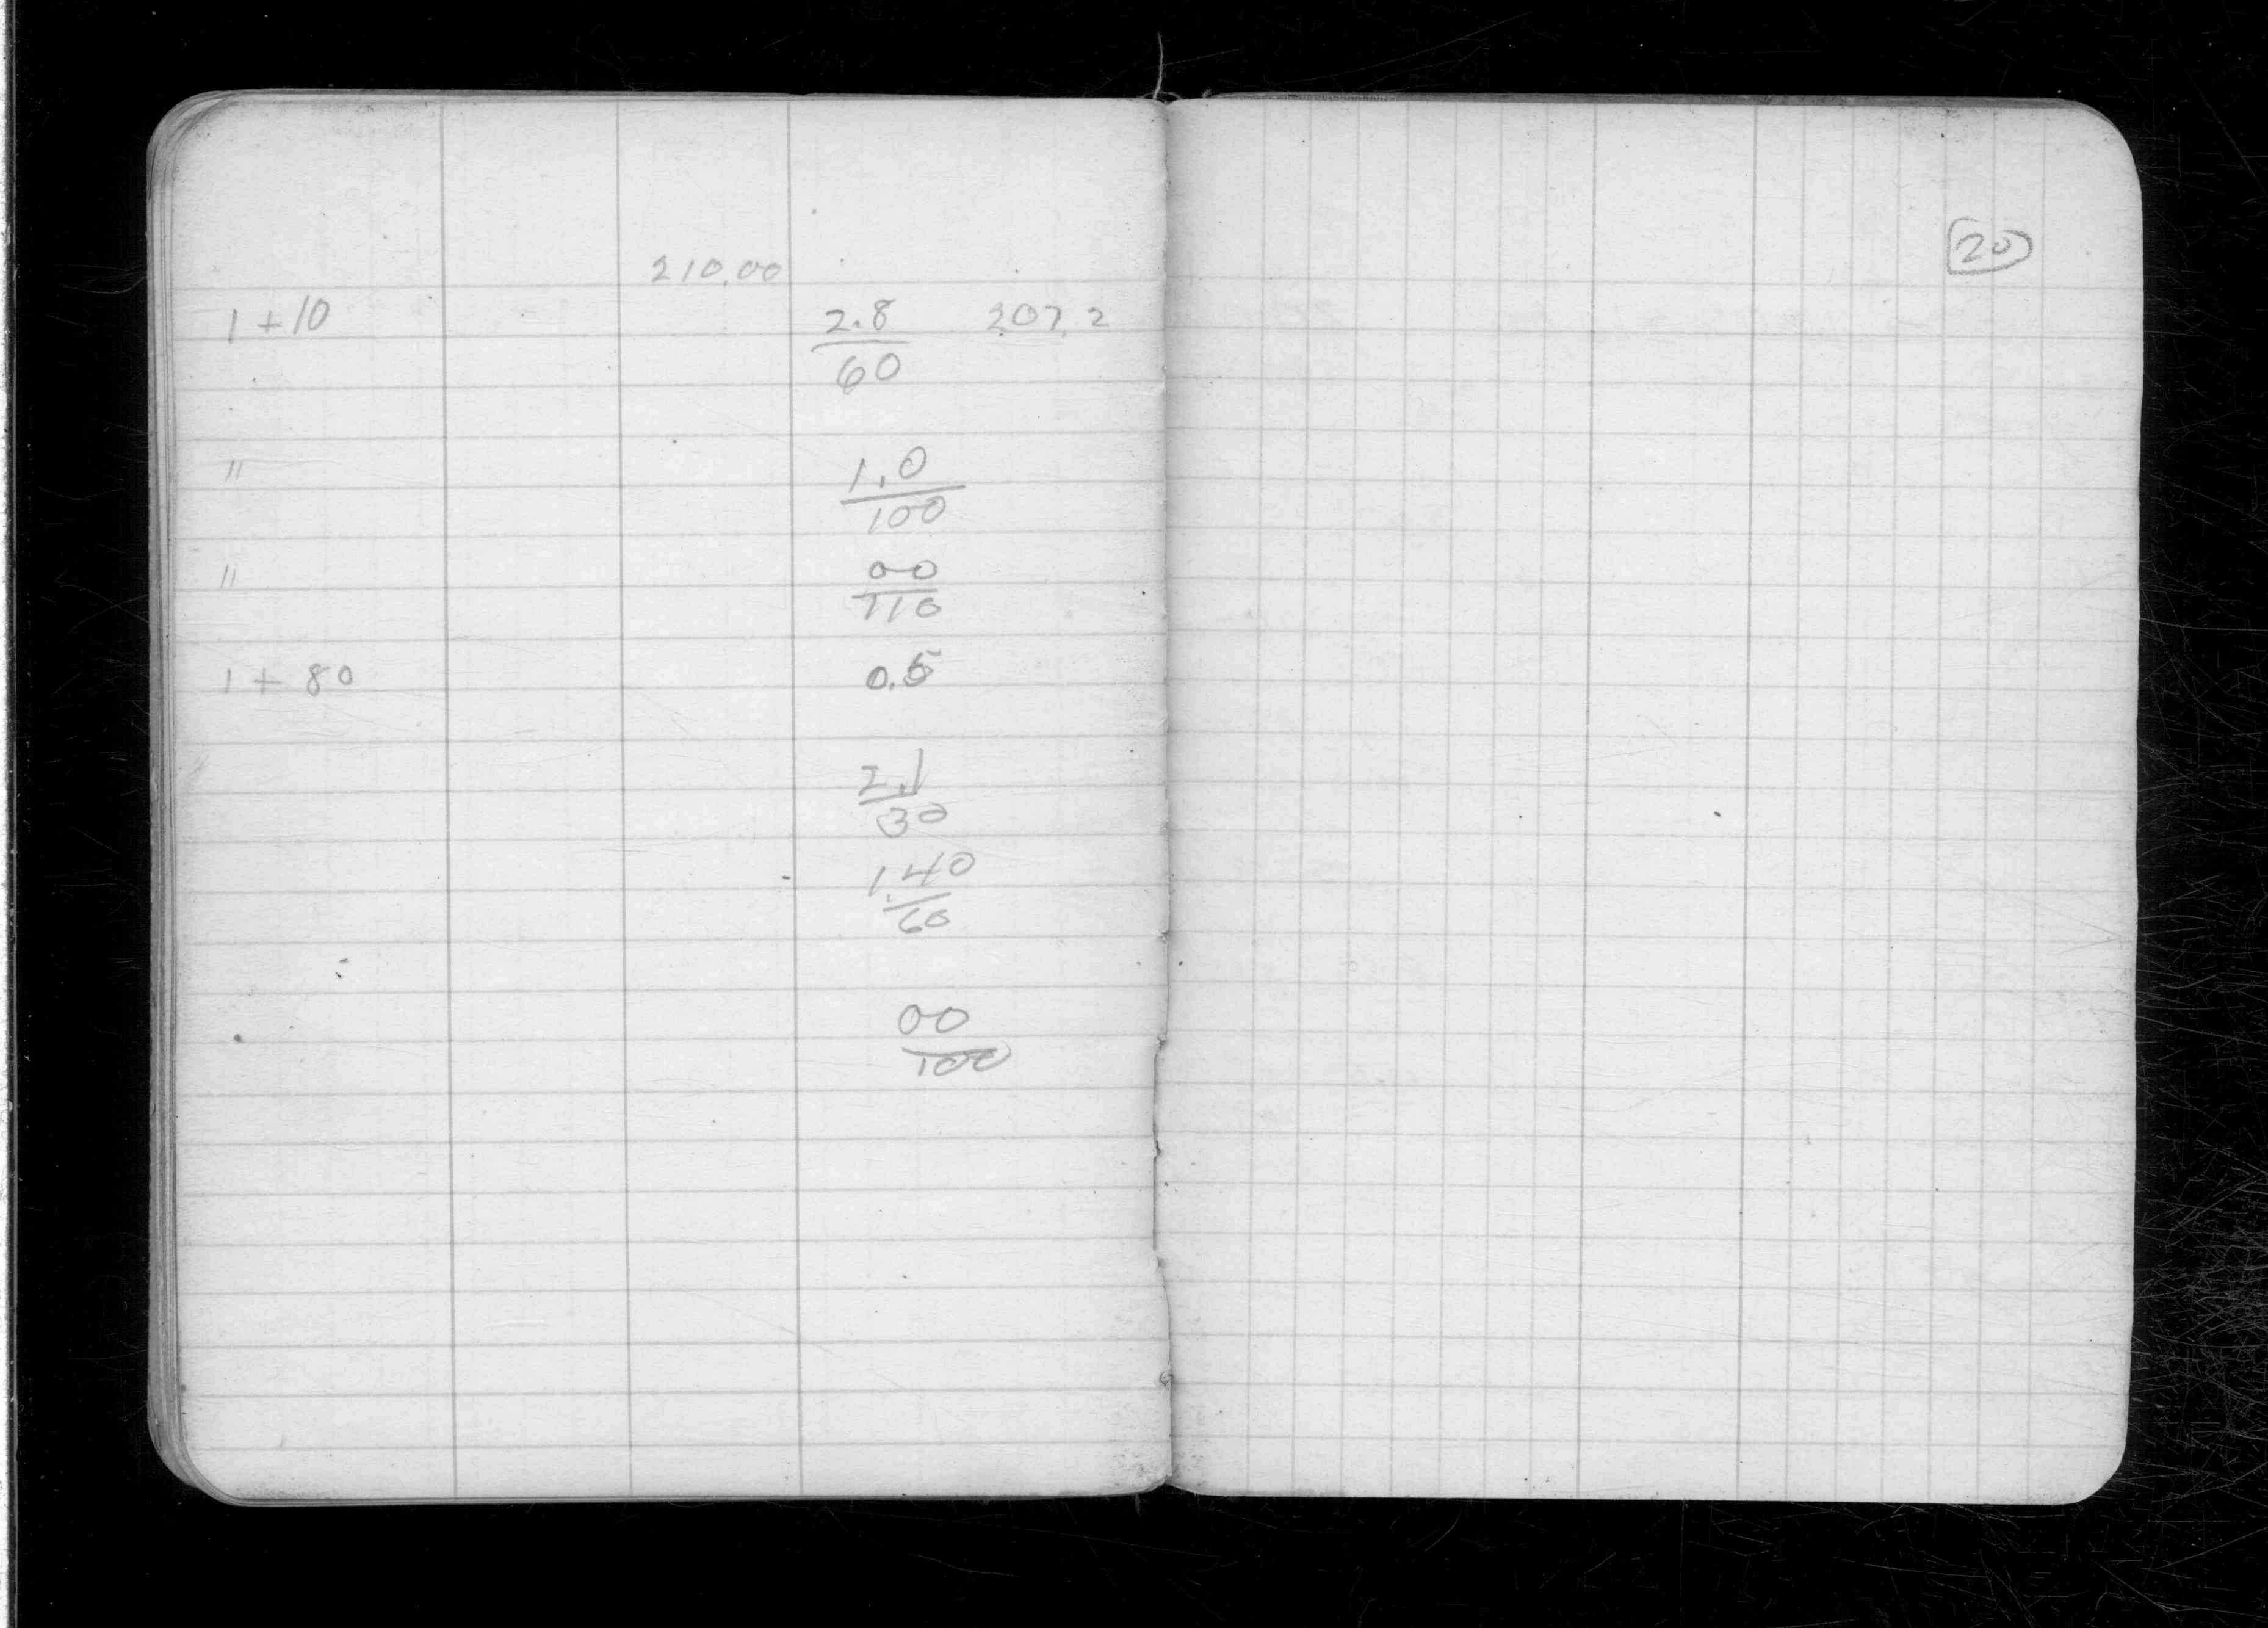 210.00
1 + 10 2.8 207.2
60
" 1.0
100
" 00
110
1 + 80 0.5
2.1
30
1.40
60
00
100
20